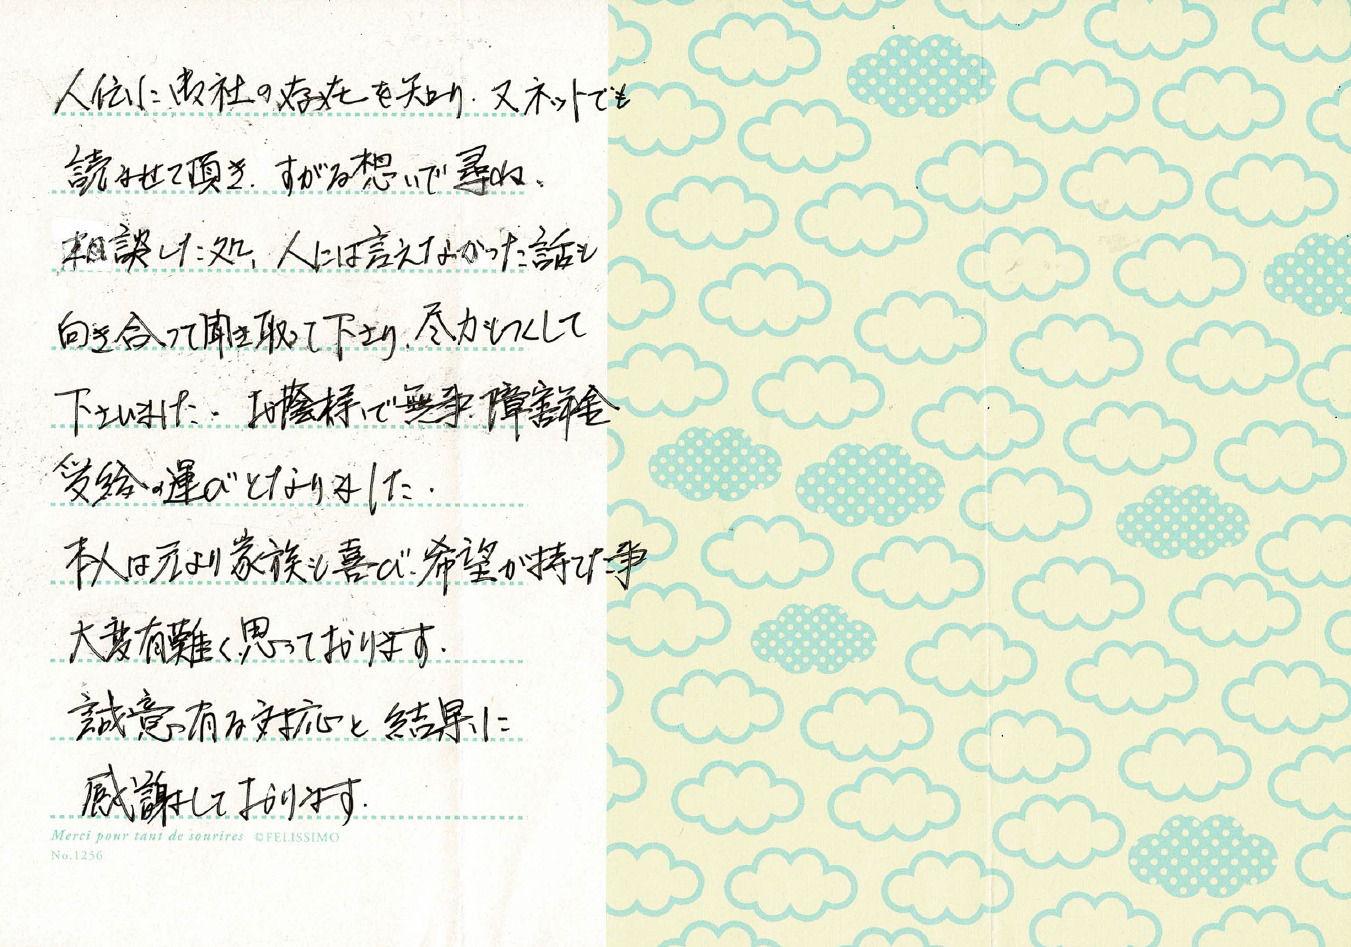 人伝に貴社の存在を知り、又ネットでも
読ませて頂き、すがる想いで尋ね、
相談した処、人には言えなかった話も
向き合って聞き取って下さり、尽力もつくして
下さいました。お蔭様で無事障害年金
受給の運びとなりました。
本人は元より家族も喜び、希望が持てた事
大変有難く思っております。
誠意の有る対応と結果に
感謝しております。
Merci pour tant de sourires ©FELISSIMO
No.1256